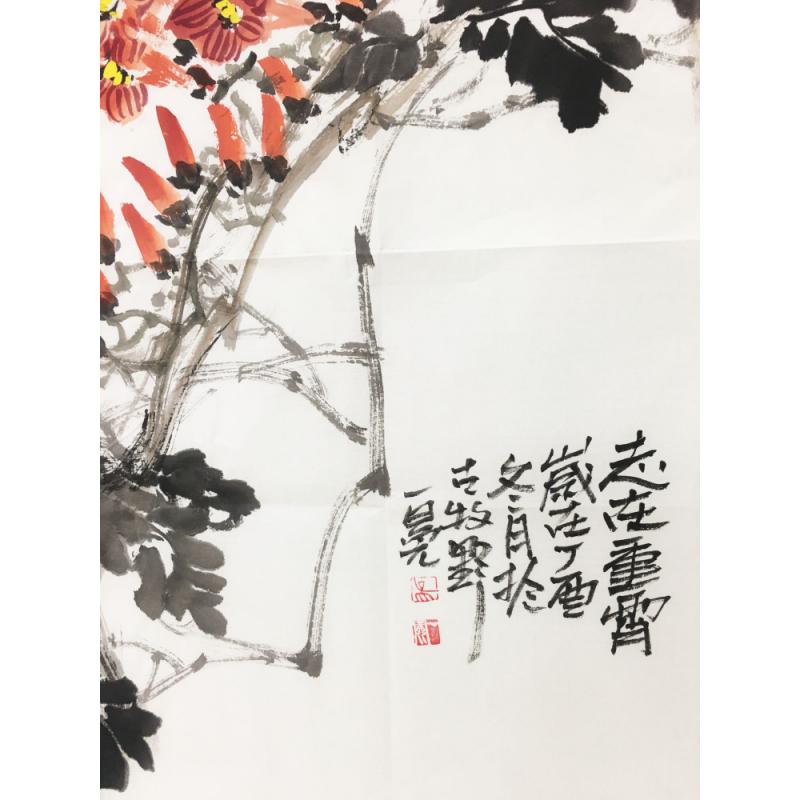 志在重霄
岁在丁酉
冬月於
古牧野
一亮